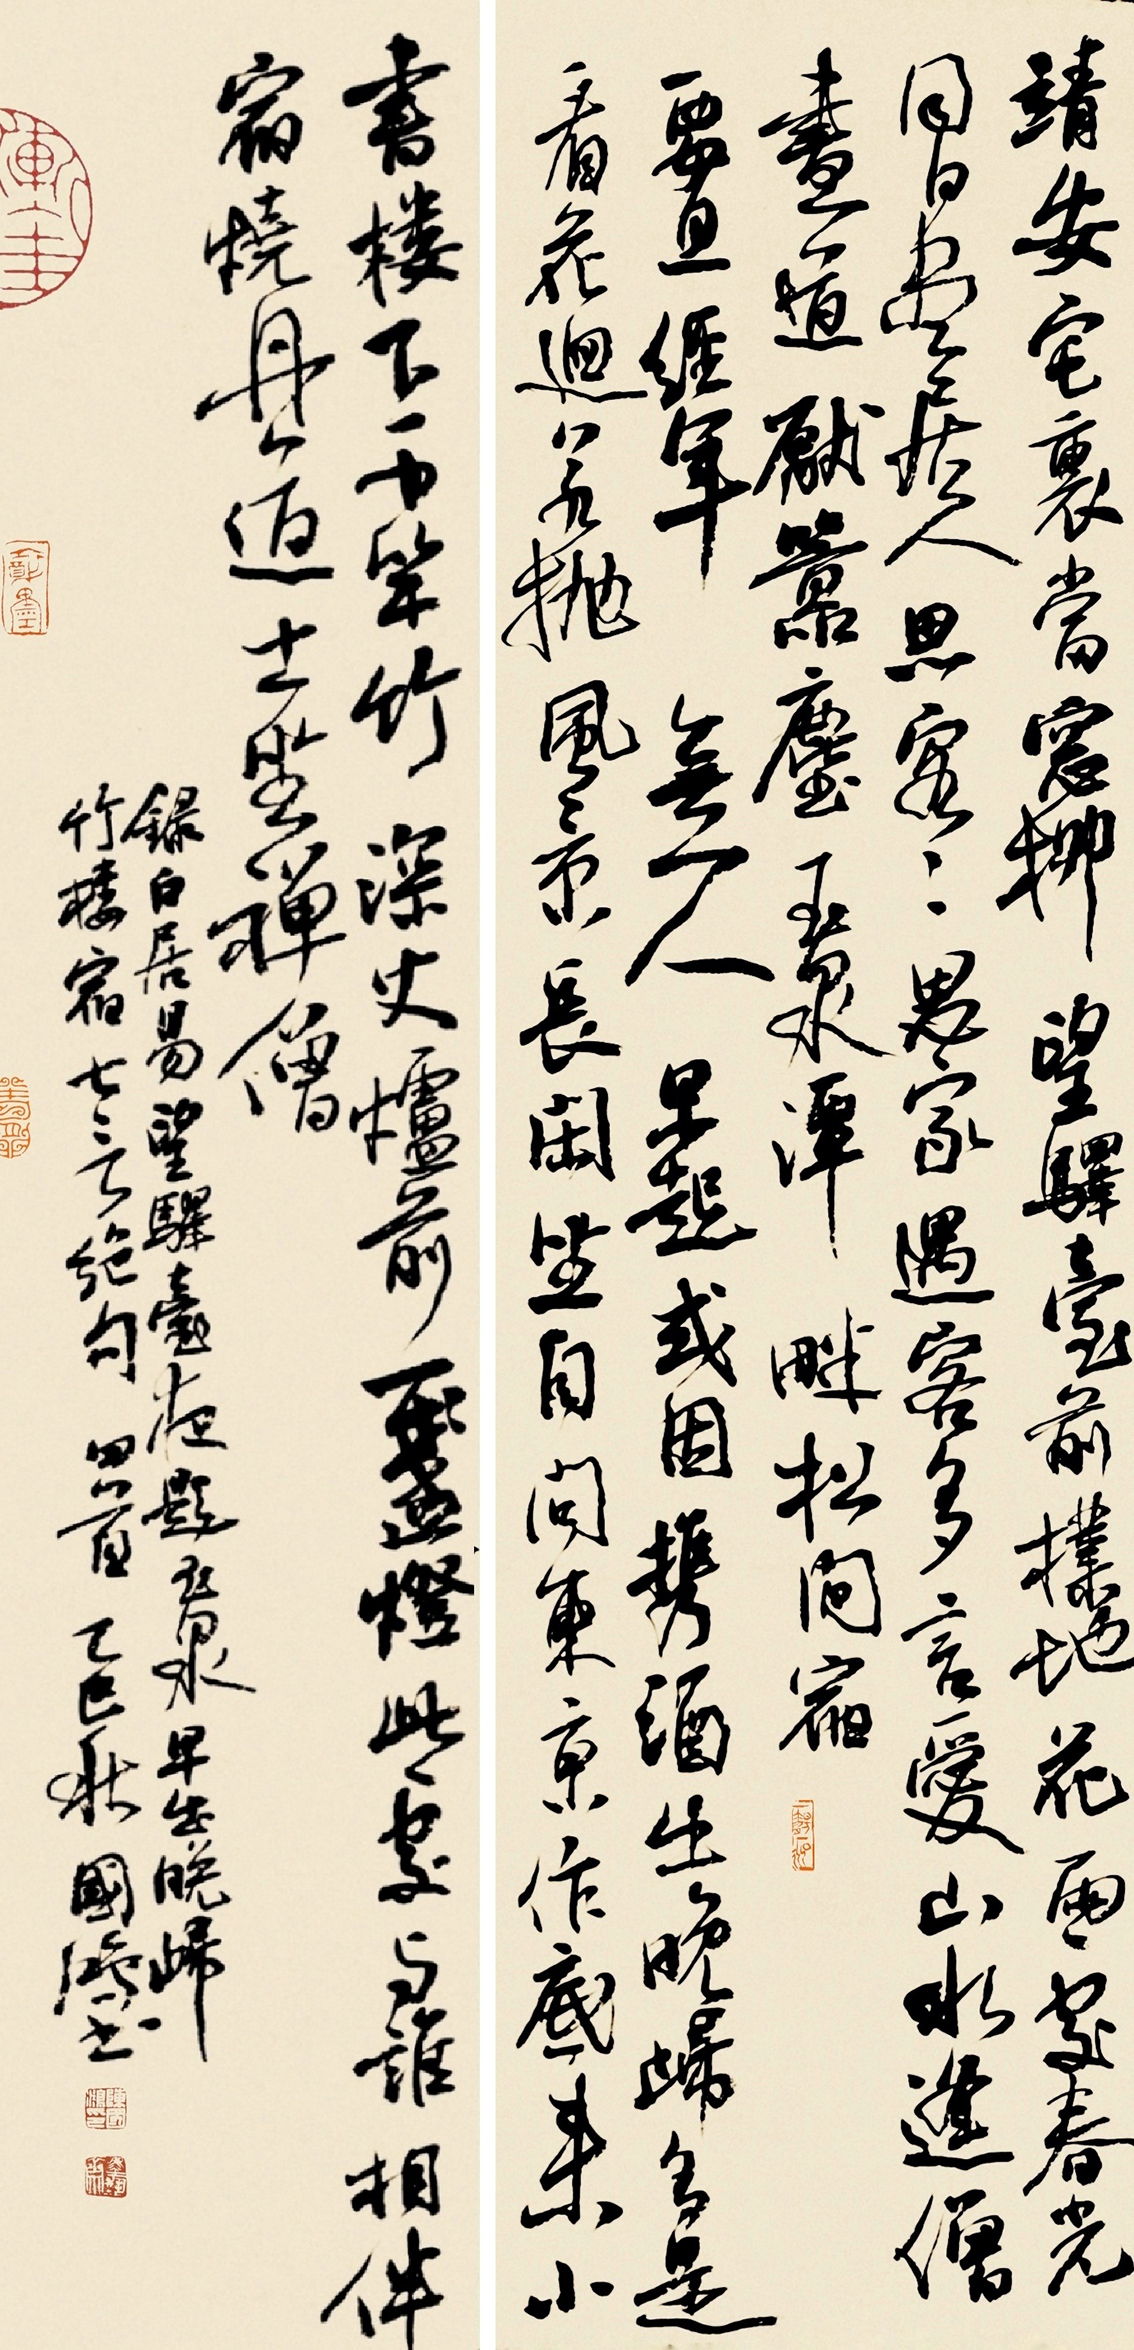 靖安宅裏當窓柳望驛臺前撲地花兩處春光
同日盡居人思客々思家遇客多言愛山水逢僧
盡道厭囂塵玉泉潭畔松間宿
要且經年無一人早起或因携酒出晚歸多是
看花迴若拋風景長閑坐自問東京作底來小
書楼下千竿竹深火爐前一盞燈此處與誰相伴
宿燒丹道士坐禪僧
錄白居易望驛臺夜題玉泉早出晚歸
竹樓宿七言絕句四首乙巳秋國鴻書